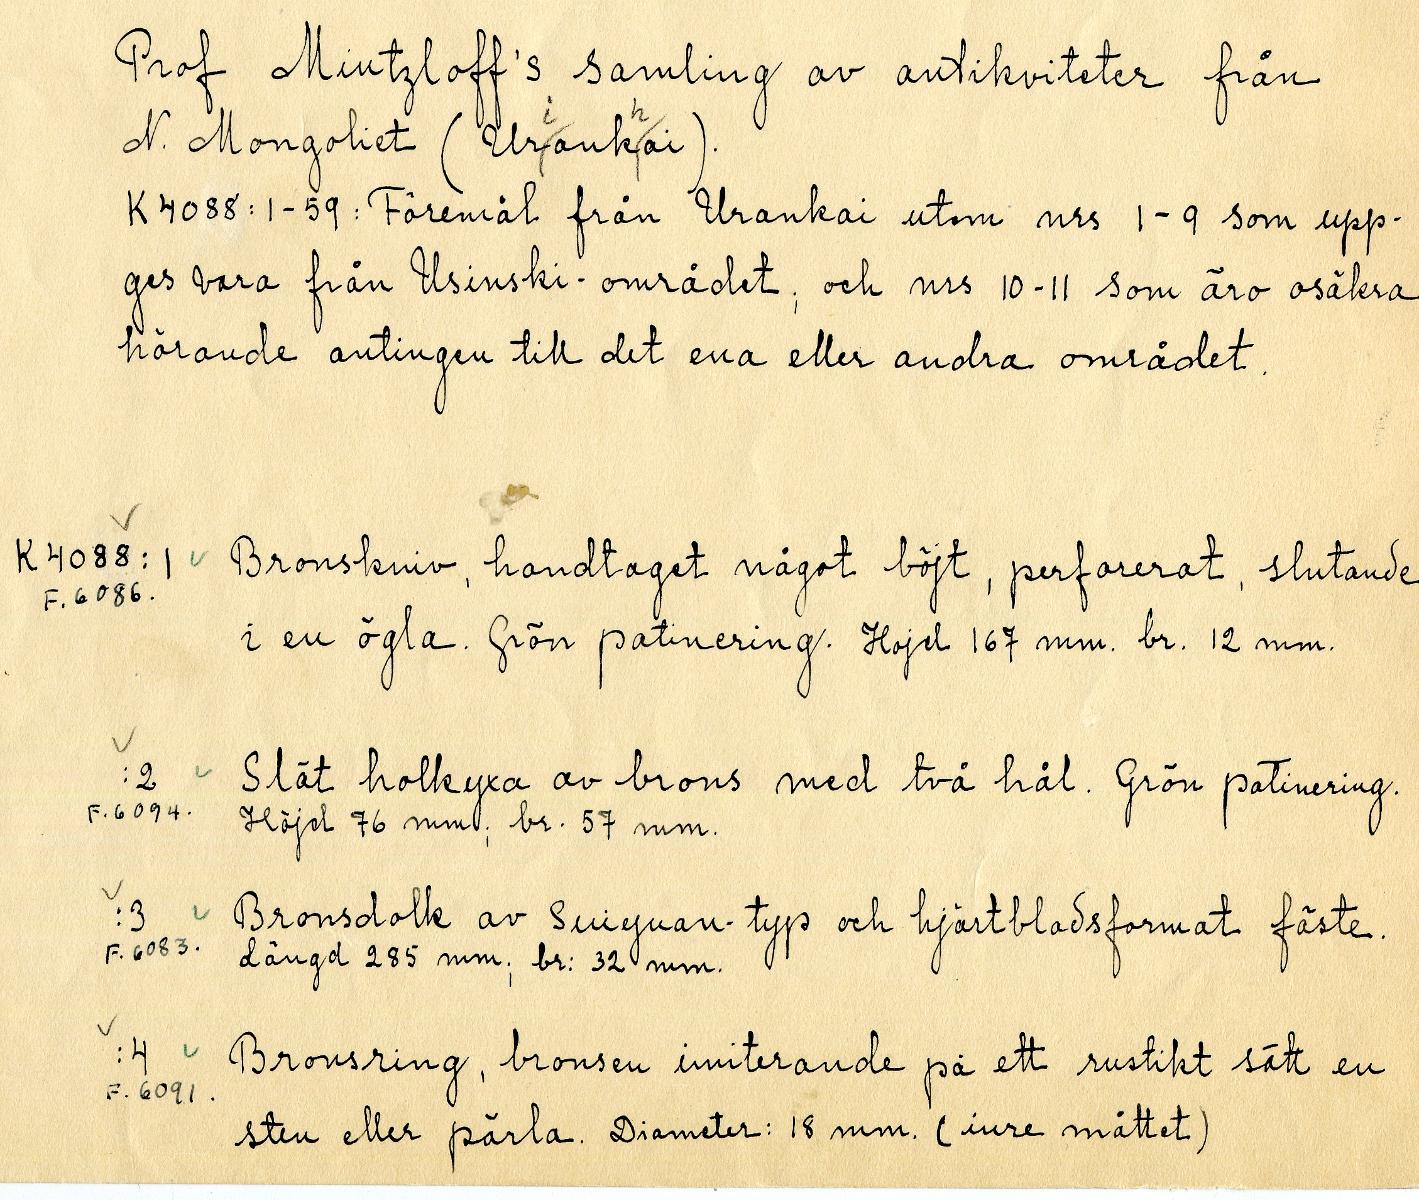 Prof Mintzloff's samling av antikviteter från
i h
N. Mongoliet (Urankai).
K 4088:1-59: Föremål från Urankai utom nrs 1-9 som upp-
ges vara från Usinski-området, och nrs 10-11 som äro osäkra
hörande antingen till det ena eller andra området.
K 4088:1 Bronskniv, handtaget något böjt, perforerat, slutande
F.6086.
i en ögla. Grön patinering. Höjd 167 mm. br. 12 mm.
:2 Slät holkyxa av brons med två hål. Grön patinering.
F.6094. Höjd 76 mm; br. 57 mm.
:3 Bronsdolk av Suiyuan-typ och hjärtbladsformat fäste.
F.6083. Längd 285 mm; br: 32 mm.
:4 Bronsring, bronsen imiterande på ett rustikt sätt en
F.6091.
sten eller pärla. Diameter: 18 mm. (inre måttet)